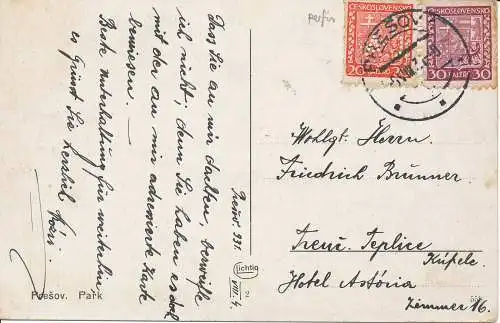 Prešov. 931.
VIII. 4.
Dass Sie an mir dachten, bezweifle
ich nicht, denn Sie haben es doch
mit der an mir adressierte Karte
bewiesen. —
Beste Unterhaltung für weiterhin,
es Grüsst Sie herzlich
perfin
ČESKOSLOVENSKO
20 HALÉŘŮ 20
ČESKOSLOVENSKO
30 HALÉŘŮ 30
PREŠOV
Wohlgb. Herrn
Friedrich Brünner
Trenč. Teplice
Kúpele
Hotel Astória
Zimmer 16.
lichtig
2
Prešov. Park